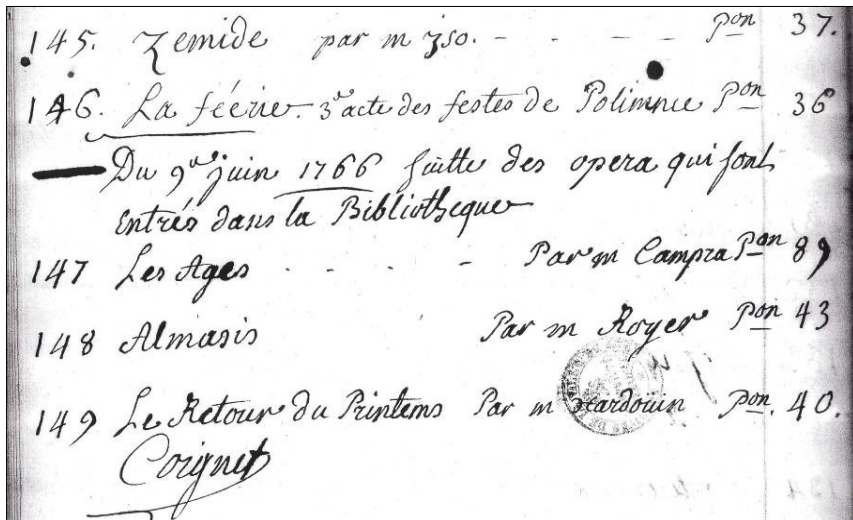 145. Zemide par m jso. - - - - pon 37.
146. La féerie. 3e acte des festes de Polimnie Pon 36
Du 9me juin 1766 suitte des opera qui sont
Entrés dans la Bibliotheque
147 Les Ages - - - - Par m Campra Pon 89
148 Almasis Par m Royer Pon 43
149 Le Retour du Printems Par m hardouin pon. 40.
Coignet